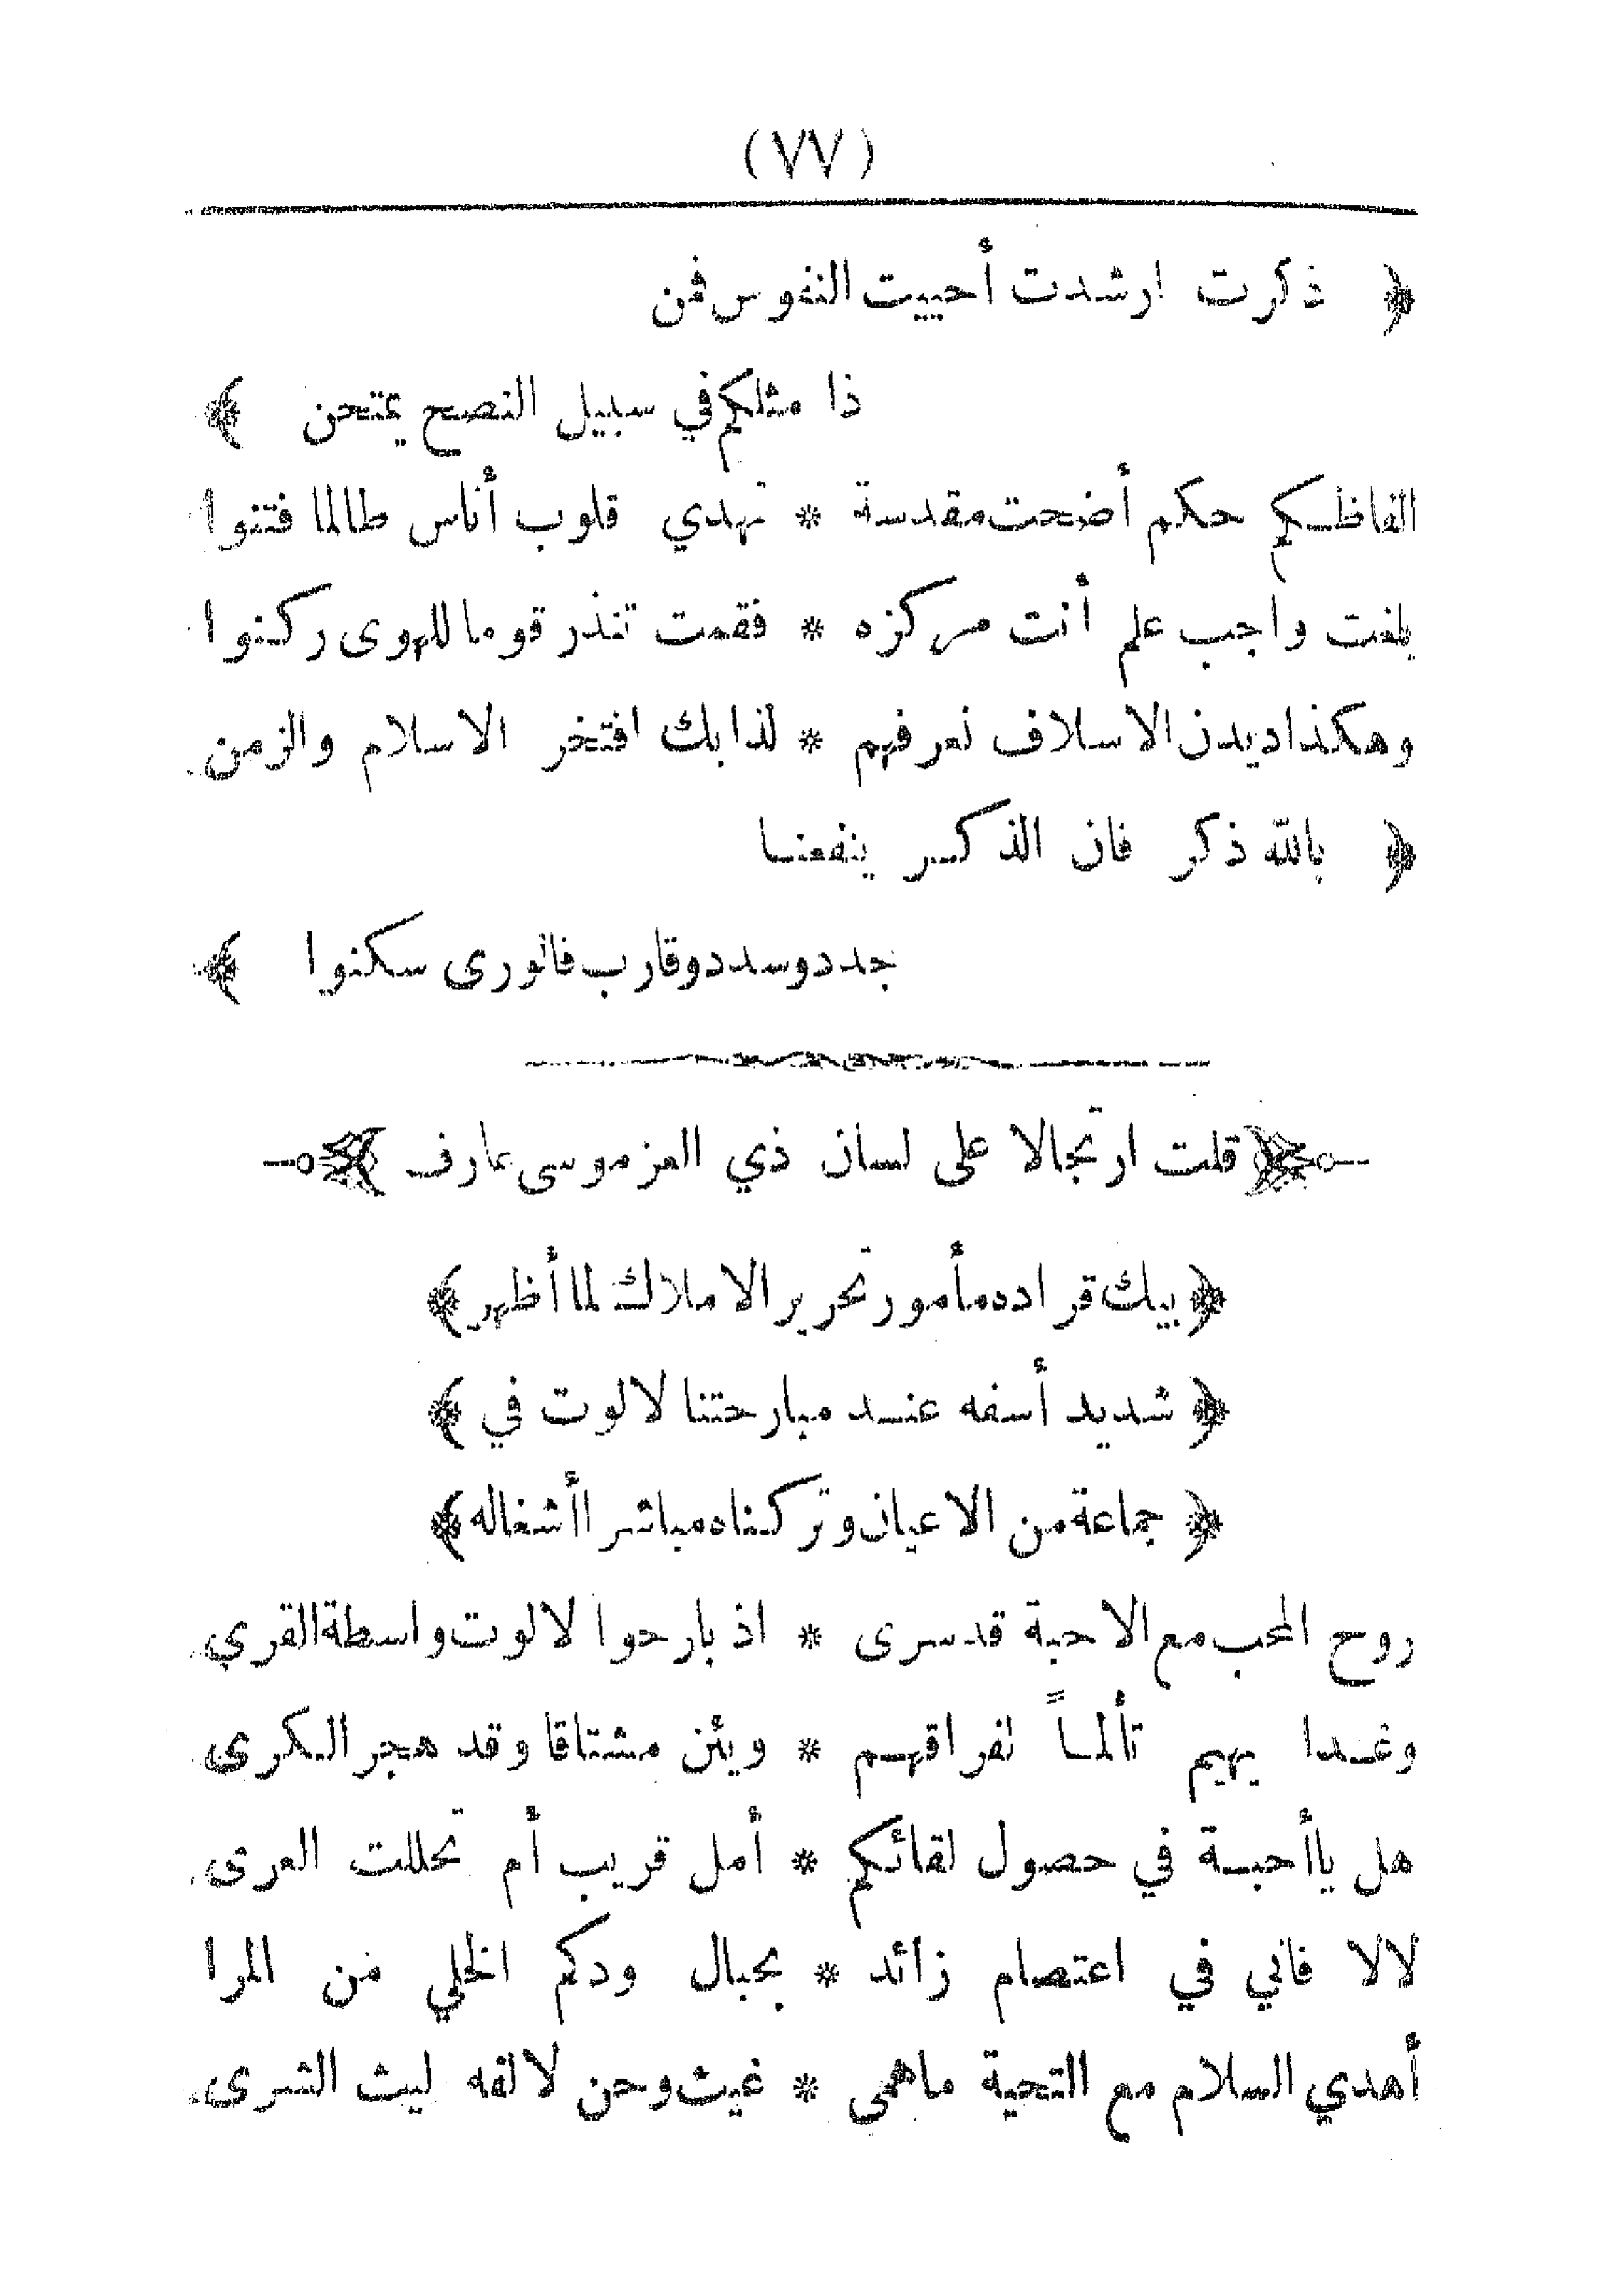 (٧٧)
﴿ ذكرت ارشدت أحييت النفوس فمن
ذا مثلكم في سبيل النصح يمتحن ﴾
الفاظكم حكم أضحت مقدسة * تهدي قلوب أناس طالما فتنوا
بلغت واجب علم أنت مركزه * فقمت تنذر قوما للهوى ركنوا
وهكذا ديدن الاسلاف نعرفهم * لذا بك افتخر الاسلام والزمن
﴿ بالله ذكر فان الذكر ينفعنا
جدد وسدد وقارب فالورى سكنوا ﴾
﴿ قلت ارتجالا على لسان ذي العز موسى عارف ﴾
﴿ بيك قراده مأمور تحرير الاملاك لما أظهر ﴾
﴿ شديد أسفه عند مبارحتنا لالوت في ﴾
﴿ جماعة من الاعيان وتركناه مباشرا أشغاله ﴾
روح المحب مع الاحبة قد سرى * اذ بارحوا لالوت واسطة القري
وغدا يهيم تألماً لفراقهم * ويئن مشتاقا وقد هجر الكرى
هل يا أحبة في حصول لقائكم * أمل قريب أم تحللت العرى
لا لا فاني في اعتصام زائد * بحبال ودكم الخلي من المرا
أهدي السلام مع التحية ما همى * غيث وحن لالفه ليث الشرى